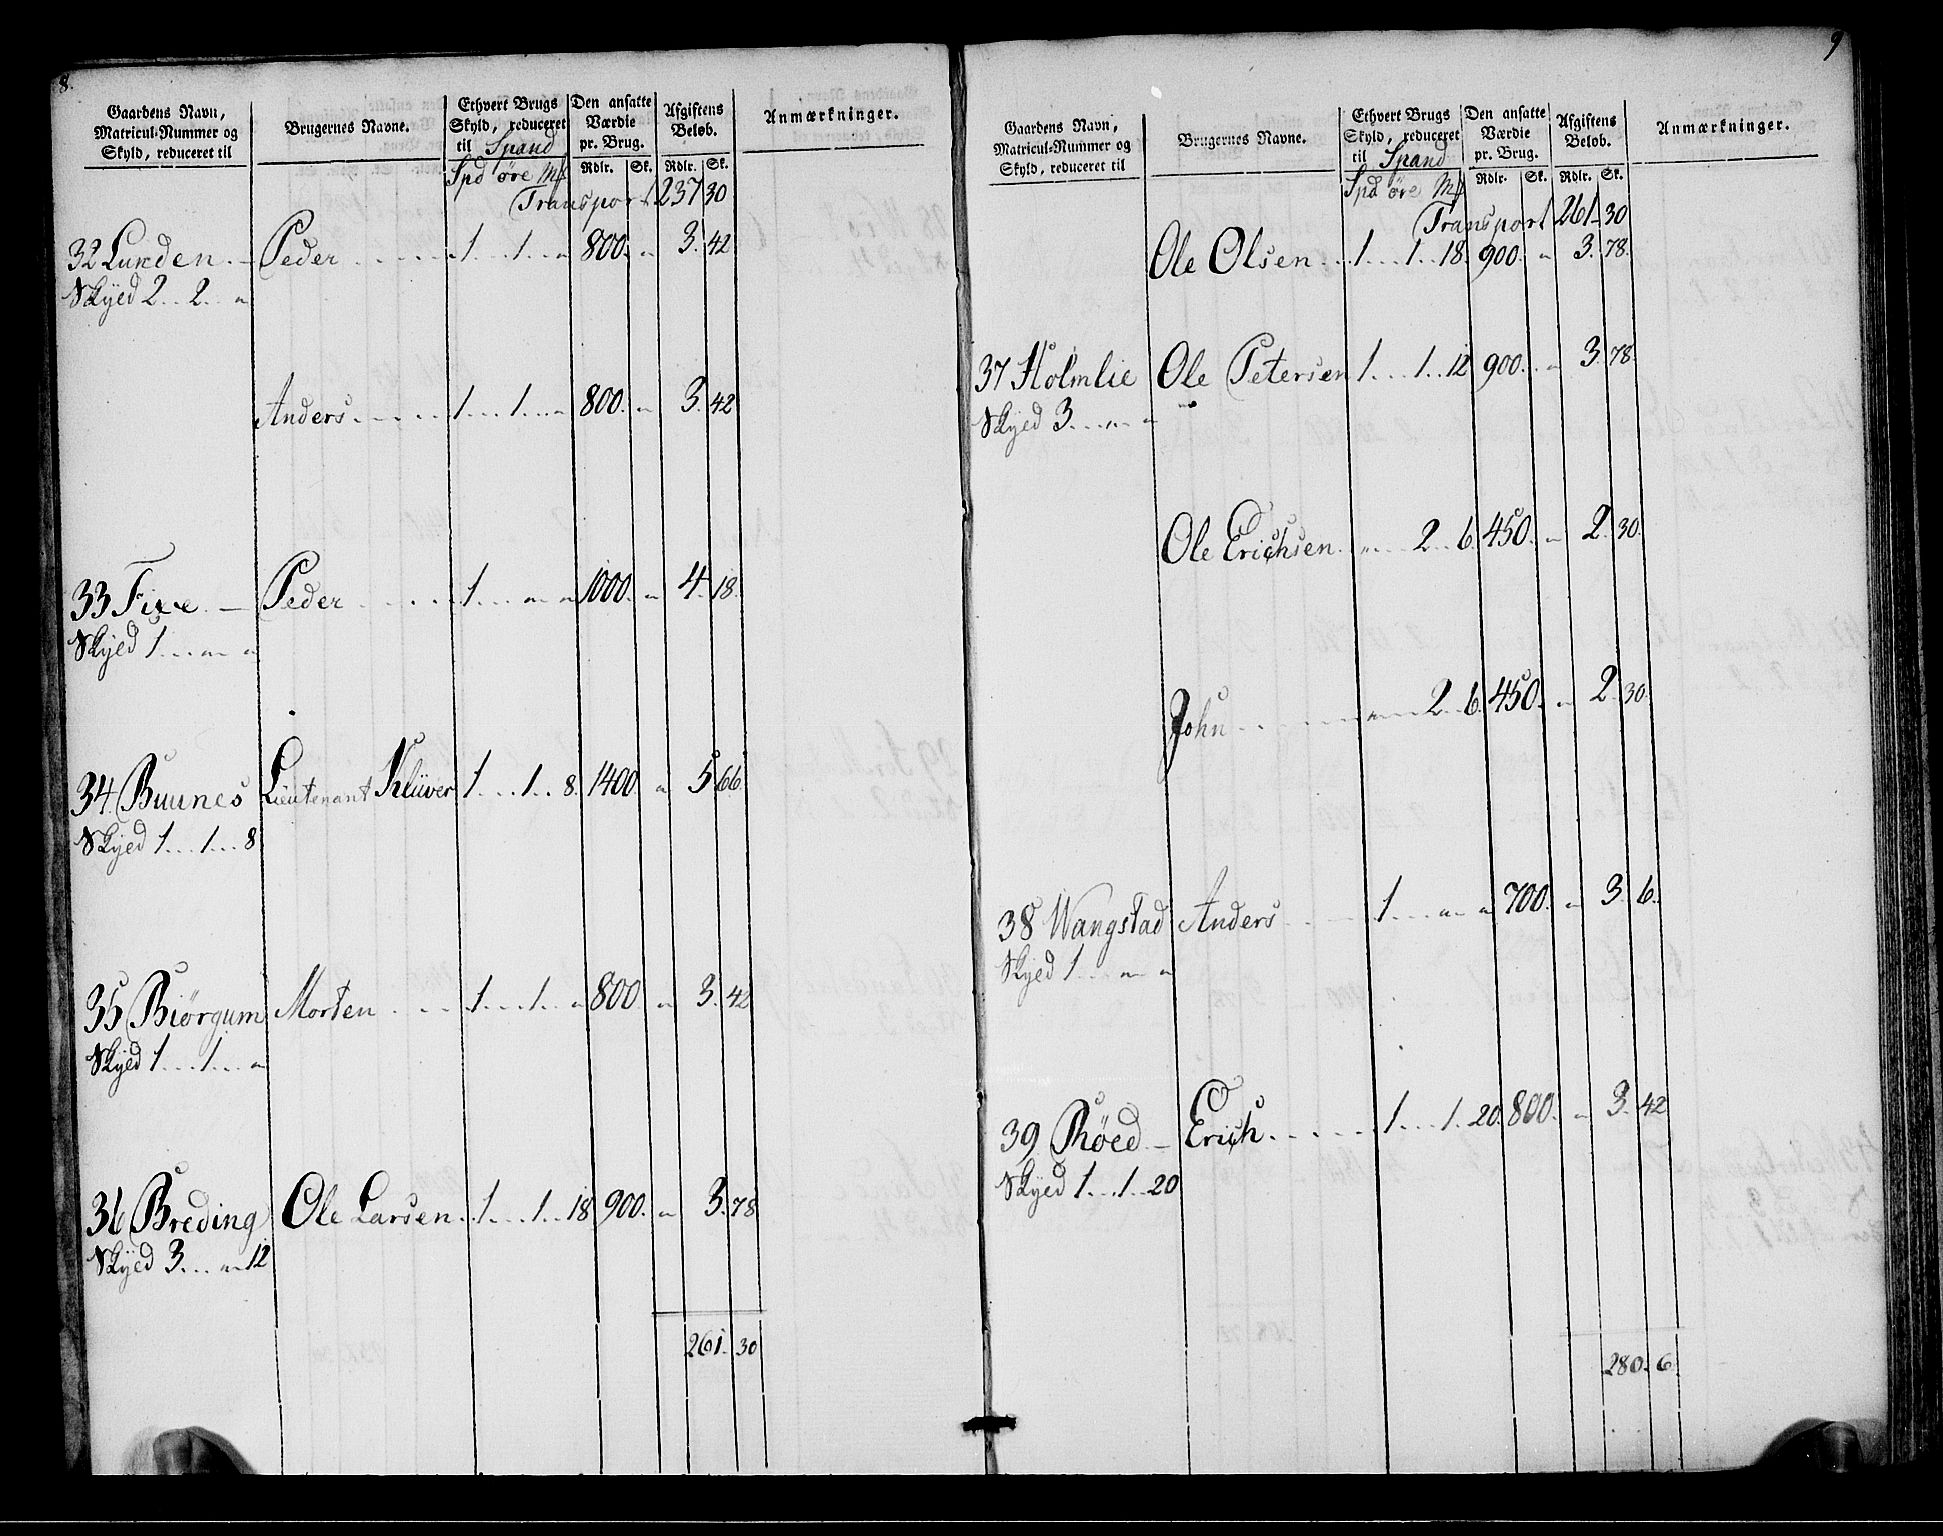 8.
Gaardens Navn, Matricul-Nummer og Skyld, reduceret til | Brugernes Navne. | Ethvert Brugs Skyld, reduceret til Spand | Den ansatte Værdie pr. Brug. | Afgiftens Beløb. | Anmærkninger.
Spd öre Mf | Rdlr. Sk. | Rdlr. Sk.
Transport 237 30
32 Lunden .. Peder ..... 1...1..." 800. " 3. 42
Skyed 2...2.."
Anders ..... 1...1..." 800. " 3. 42
33 Fixe — Peder ..... 1..."" 1000. " 4. 18.
Skyed 1...."."
34. Buunes Lieutenant Klüver 1....1..8. 1400. " 5 66.
Skyed 1...1...8
35 Biörgum Morten .... 1...1..." 800 " 3. 42
Skyed 1....1..."
36 Breding Ole Larsen.. 1....1..18 900. " 3. 78
Skyed 3..."12
261. 30
9
Gaardens Navn, Matricul-Nummer og Skyld, reduceret til | Brugernes Navne. | Ethvert Brugs Skyld, reduceret til Spand | Den ansatte Værdie pr. Brug. | Afgiftens Beløb. | Anmærkninger.
Spd öre Mf | Rdlr. Sk. | Rdlr. Sk.
Transport 261 30
Ole Olsen... 1....1..18. 900. " 3. 78.
37 Holmlie Ole Petersen 1....1..12 900. " 3. 78.
Skyed 3...."."
Ole Erichsen. ."...2..6. 450. " 2. 30.
John ......"..2..6. 450. " 2. 30.
38 Wangstad Anders .... 1..."." 700. " 3. 6.
Skyed 1...."."
39 Röed — Erich ...... 1....1.20. 800. " 3. 42
Skyed 1...1..20
280. 6.